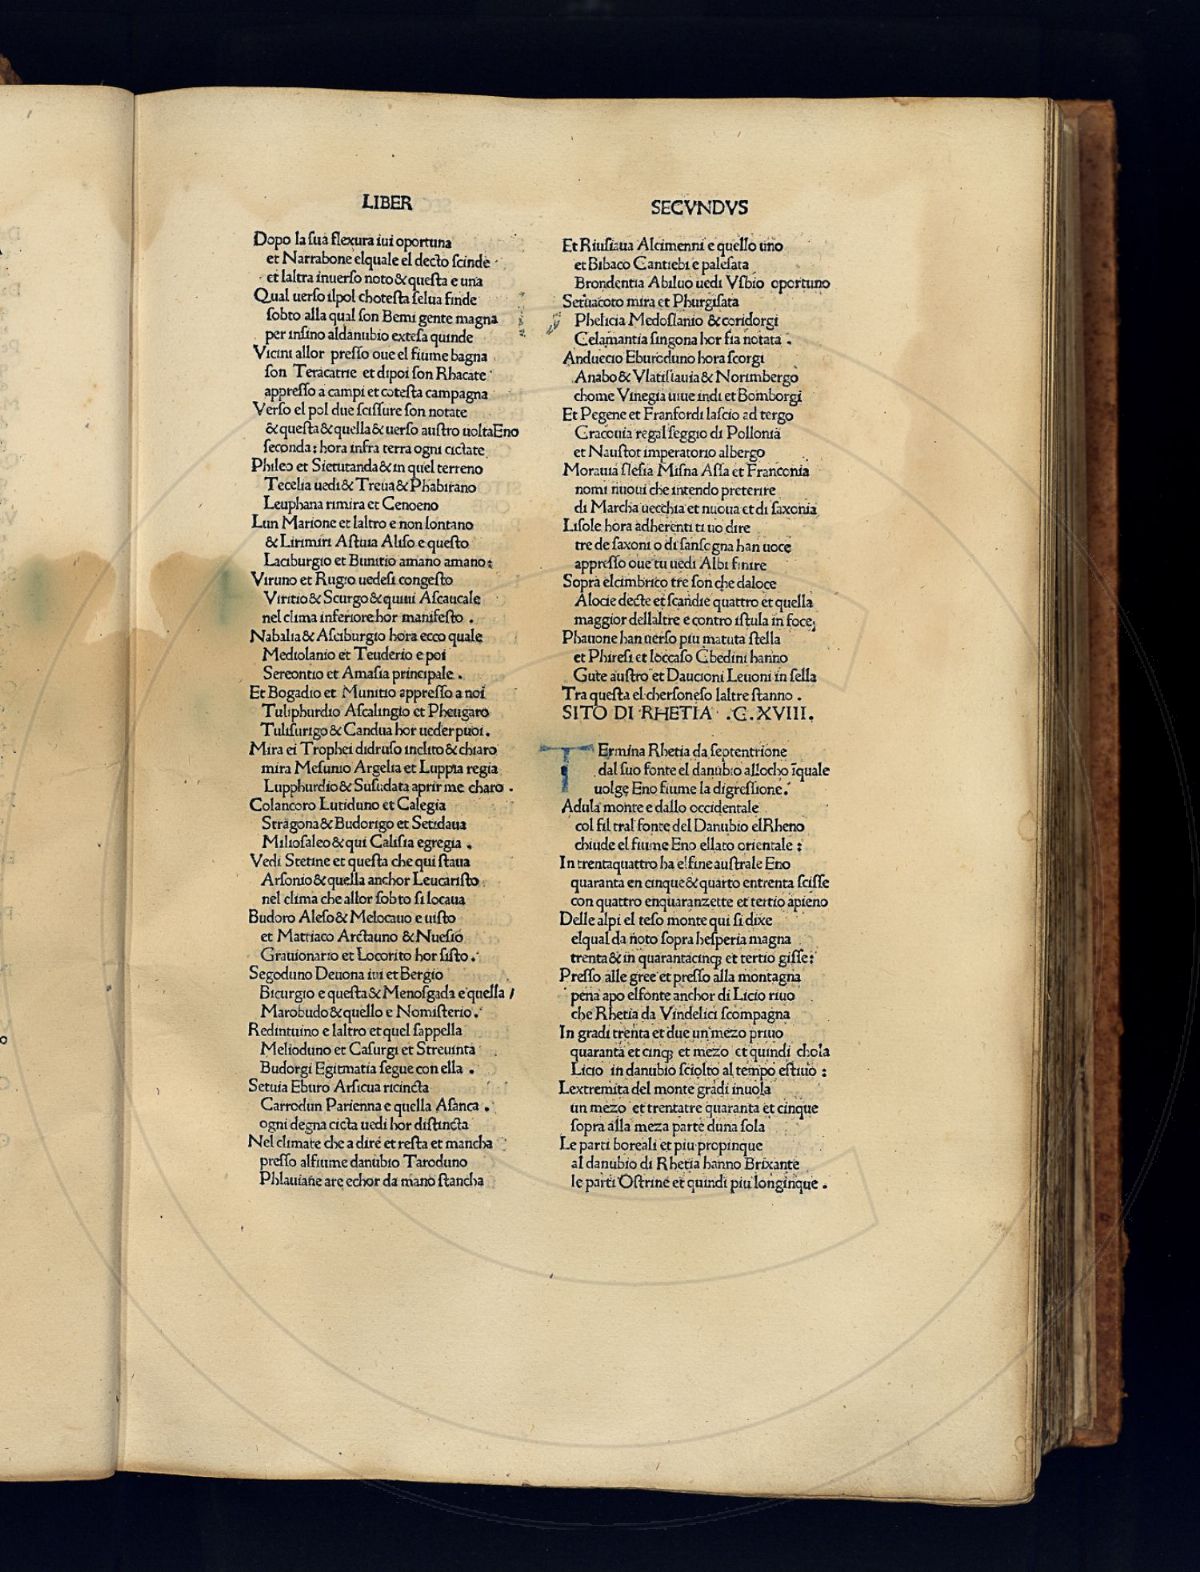 LIBER
Dopo la sua flexura iui oportuna
et Narrabone elquale el decto scinde
et laltra inuerso noto & questa e una
Qual uerso ilpol chotesta selua finde
sobto alla qual son Bemi gente magna
per insino aldanubio extesa quinde
Vicini allor presso oue el fiume bagna
son Teracatrie et dipoi son Rhacate
appresso a campi et cotesta campagna
Verso el pol due scissure son notate
& questa & quella & uerso austro uolta Eno
seconda: hora infra terra ogni cictate
Phileo et Sietutanda & in quel terreno
Tecelia uedi & Treua & Phabirano
Leuphana rimira et Cenoeno
Lun Marione et laltro e non lontano
& Lirimiri Astuia Aliso e questo
Laciburgio et Bunitio amano amano:
Viruno et Rugio uedesi congesto
Viritio & Scurgo & quiui Ascaucale
nel clima inferiore hor manifesto .
Nabalia & Asciburgio hora ecco quale
Mediolanio et Teuderio e poi
Sereontio et Amasia principale .
Et Bogadio et Munitio appresso a noi
Tuliphurdio Ascalingio et Pheugaro
Tulisurigo & Candua hor ueder puoi .
Mira ei Trophei didruso inclito & chiaro
mira Mesunio Argelia et Luppia regia
Lupphurdio & Susudata aprir me charo .
Colancoro Lutiduno et Calegia
Stragona & Budorigo et Setidaua
Miliosaleo & qui Calisia egregia .
Vedi Stetine et questa che qui staua
Arsonio & quella anchor Leucaristo
nel clima che allor sobto si locaua
Budoro Aleso & Melocauo e uisto
et Matriaco Arctauno & Nuesio
Grauionario et Locorito hor sisto .
Segoduno Deuona iui et Bergio
Bicurgio e questa & Menosgada e quella /
Marobudo & quello e Nomisterio .
Redintuino e laltro et quel sappella
Melioduno et Casurgi et Streuinta
Budorgi Egitmatia segue con ella .
Setuia Eburo Arsicua ricincta
Carrodun Parienna e quella Asanca .
ogni degna cicta uedi hor distincta
Nel climate che a dire et resta et mancha
presso alfiume danubio Taroduno
Phlauiane are echor da mano stancha
SECVNDVS
Et Riusiaua Alcimenni e quello uno
et Bibaco Cantiebi e palesata
Brondentia Abiluo uedi Vsbio oportuno
Setuacoto mira et Phurgisata
Phelicia Medoslanio & coridorgi
Celamantia singona hor fia notata .
Anduecio Eburoduno hora scorgi
Anabo & Vlatislauia & Norimbergo
chome Vinegia uiue indi et Bomborgi
Et Pegene et Franfordi lascio ad tergo
Craconia regal seggio di Pollonia
et Naustot imperatorio albergo
Morauia slesia Misna Assa et Franconia
nomi nuoui che intendo preterire
di Marcha uecchia et nuoua et di saxonia
Lisole hora adherenti ti uo dire
tre de saxoni o di sansogna han uoce
appresso oue tu uedi Albi finire
Sopra elcimbrico tre son che daloce
Alocie decte et scandie quattro et quella
maggior dellaltre e contro istula in foce;
Phauone han uerso piu matuta stella
et Phiresi et loccaso Chedini hanno
Gute austro et Daucioni Leuoni in sella
Tra questa el chersoneso laltre stanno .
SITO DI RHETIA .C.XVIII.
TErmina Rhetia da septentrione
dal suo fonte el danubio allocho ĩquale
uolge Eno fiume la digressione .
Adula monte e dallo occidentale
col fil tral fonte del Danubio el Rheno
chiude el fiume Eno ellato orientale :
In trentaquattro ha elfine australe Eno
quaranta en cinque & quarto entrenta scisse
con quattro enquaranzette et tertio apieno
Delle alpi el teso monte qui si dixe
elqual da noto sopra hesperia magna
trenta & in quarantacinqꝫ et tertio gisse:
Presso alle gree et presso alla montagna
pena apo elfonte anchor di Licio riuo
che Rhetia da Vindelici scompagna
In gradi trenta et due un mezo priuo
quaranta et cinqꝫ et mezo et quindi chola
Licio in danubio sciolto al tempo estiuo :
Lextremita del monte gradi inuola
un mezo et trentatre quaranta et cinque
sopra alla meza parte duna sola
Le parti boreali et piu propinque
al danubio di Rhetia hanno Brixante
le parti Ostrine et quindi piu longinque .